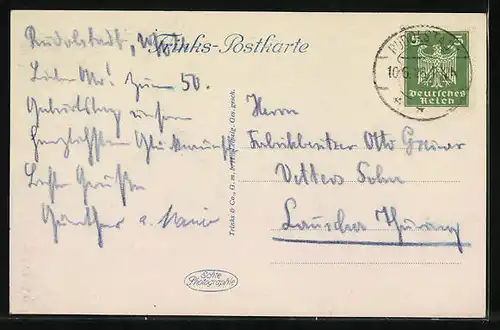 Trinks-Postkarte
Rudolstadt,
Lieber Otto! Zum 50.
Geburtstag unsern
herzlichsten Glückwunsch
Beste Grüsse
Günther u.
Trinks & Co., G. m. b. H., Leipzig. Ges. gesch.
Echte
Photographie
5 5
Deutsches
Reich
Herrn
Fabrikbesitzer Otto Greiner
Vetters Sohn
Lauscha Thüring